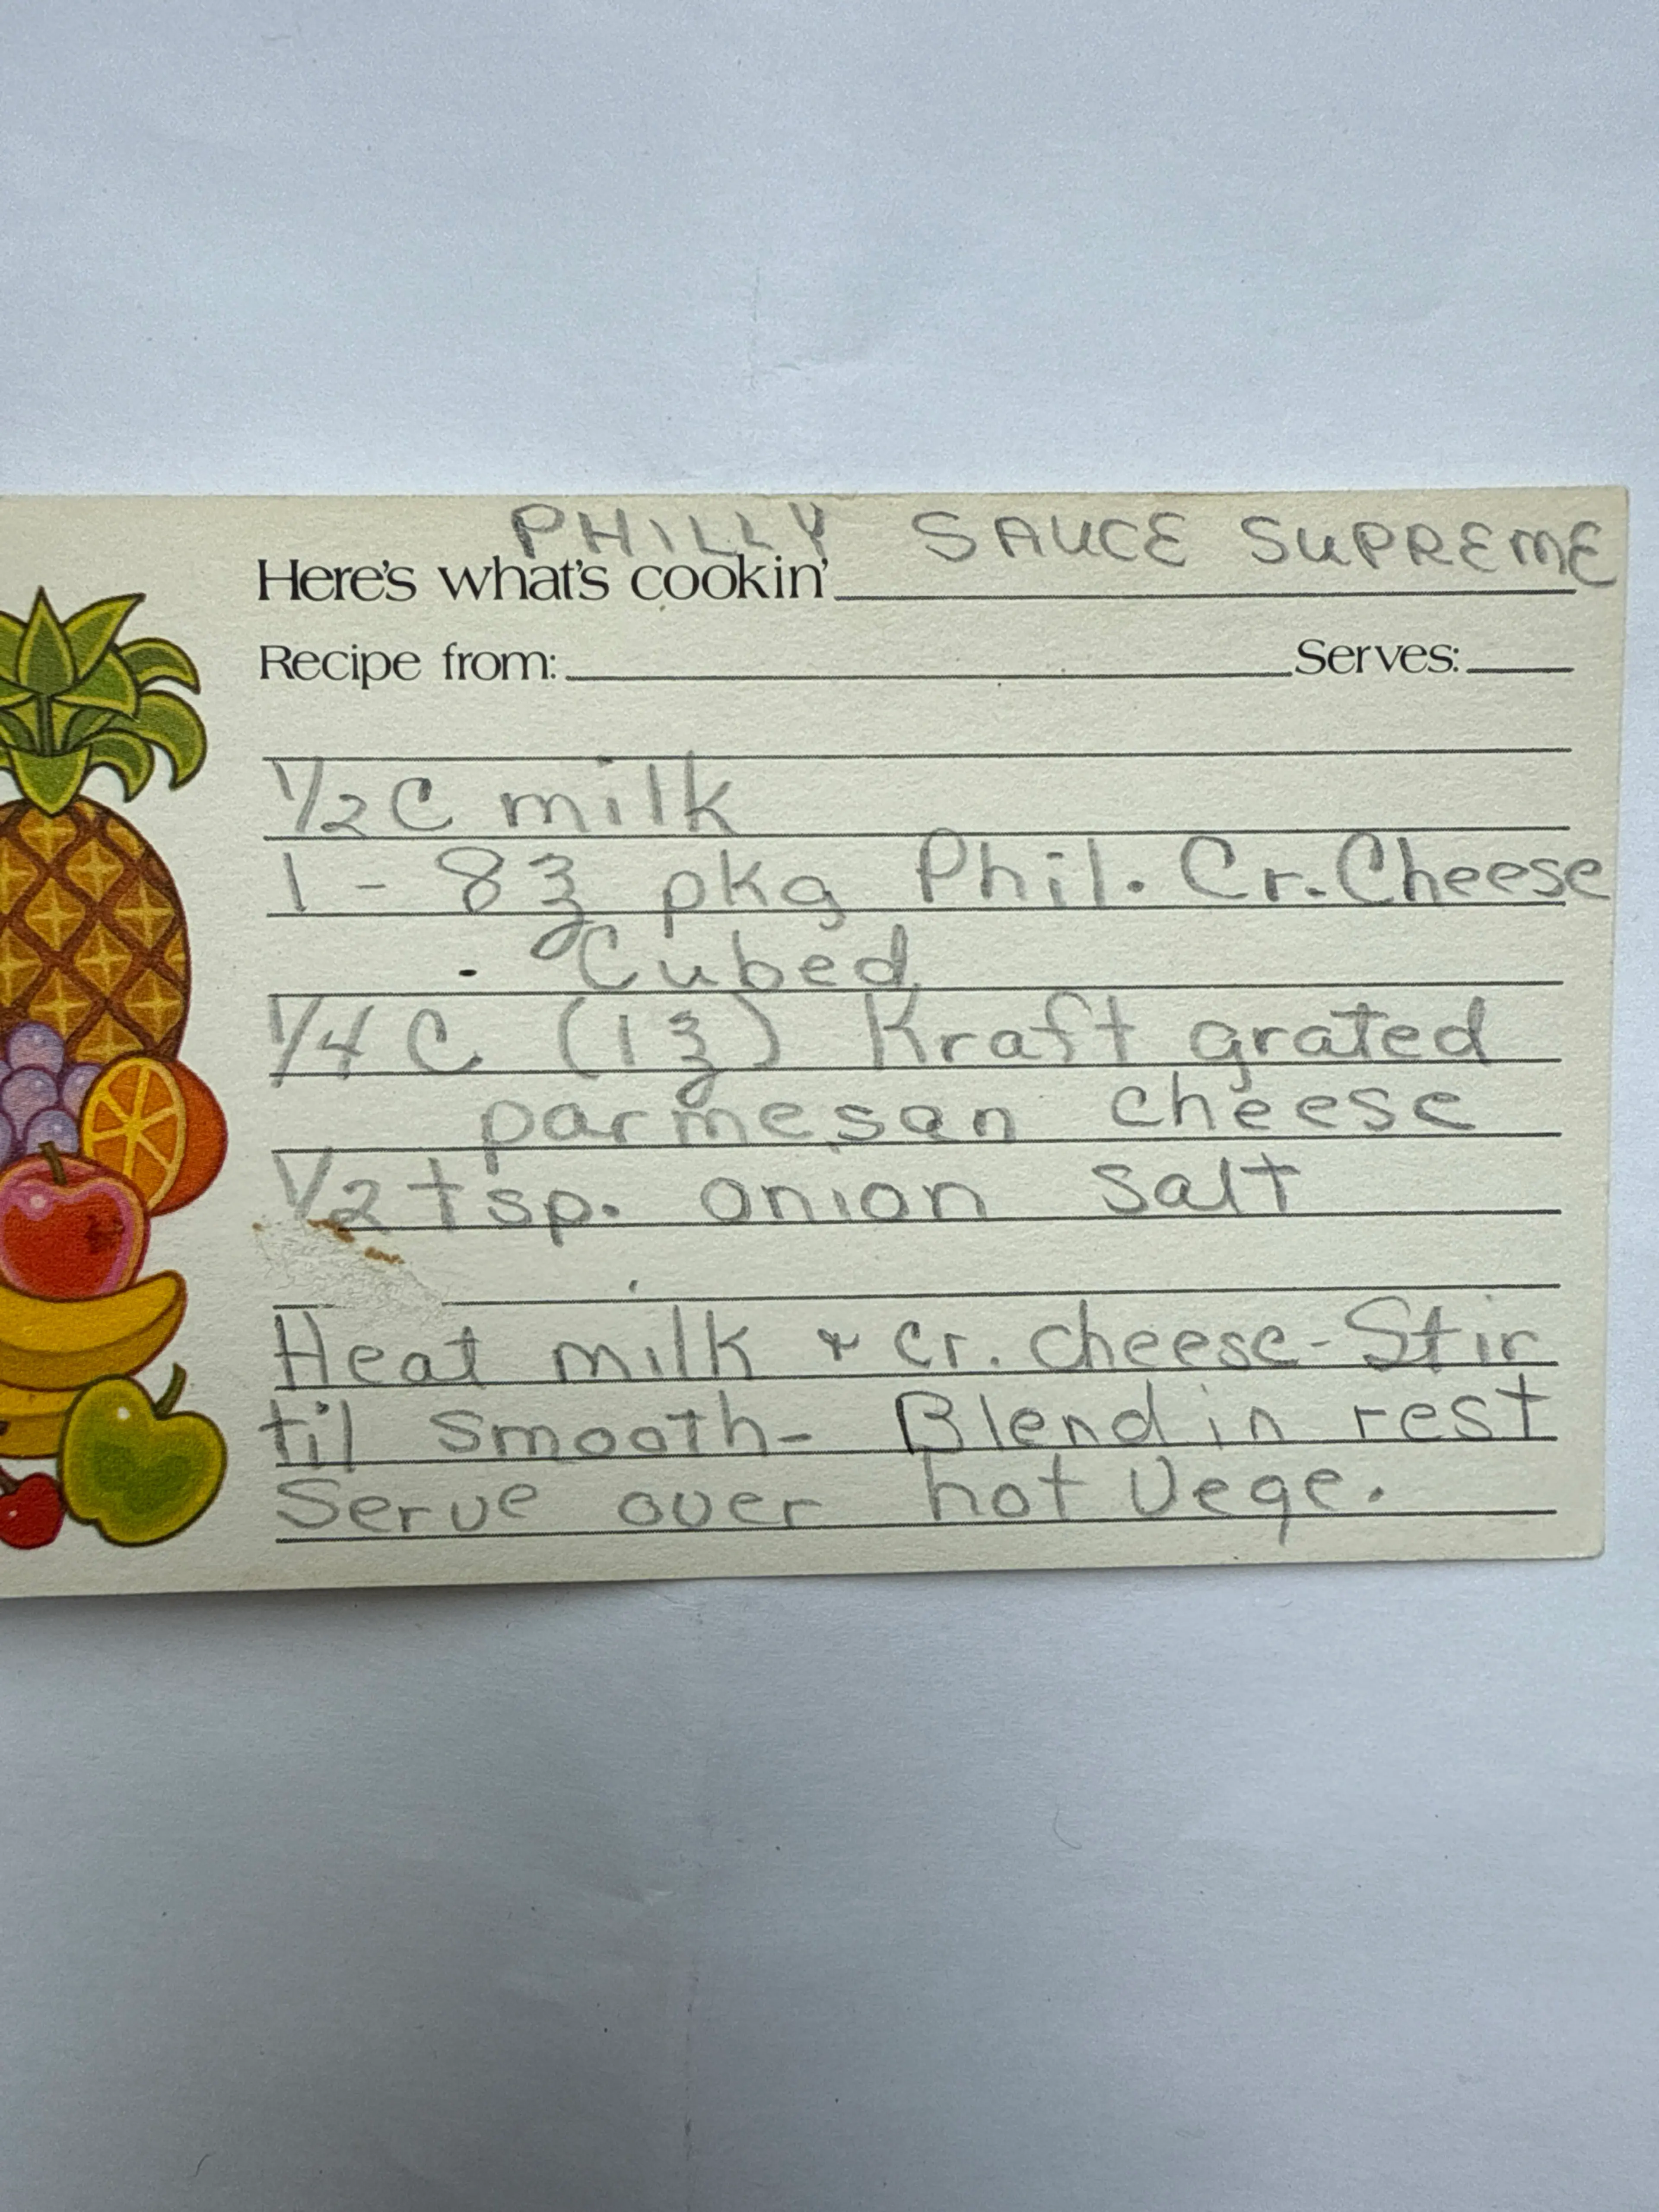 PHILLY SAUCE SUPREME
Here's what's cookin'
Recipe from: Serves:
1/2 C milk
1 - 8 ℥ pkg Phil. Cr. Cheese
Cubed
1/4 C (1 ℥) Kraft grated
parmesan cheese
1/2 tsp. onion salt
Heat milk & cr. cheese - Stir
til smooth - Blend in rest
Serve over hot Vege.